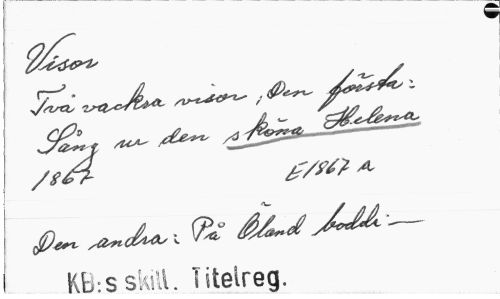 Visor
Två vackra visor, Den första:
Sång ur den sköna Helena
1867 E1867 A
Den andra: På Öland bodde —
KB:s skill. Titelreg.